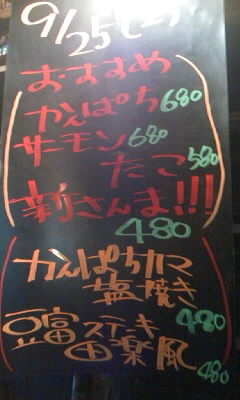 9/25
おすすめ
かんぱち 680
サーモン 680
たこ 580
新さんま!!!
480
かんぱちカマ
塩焼き
480
豆富ステーキ
田楽風
480